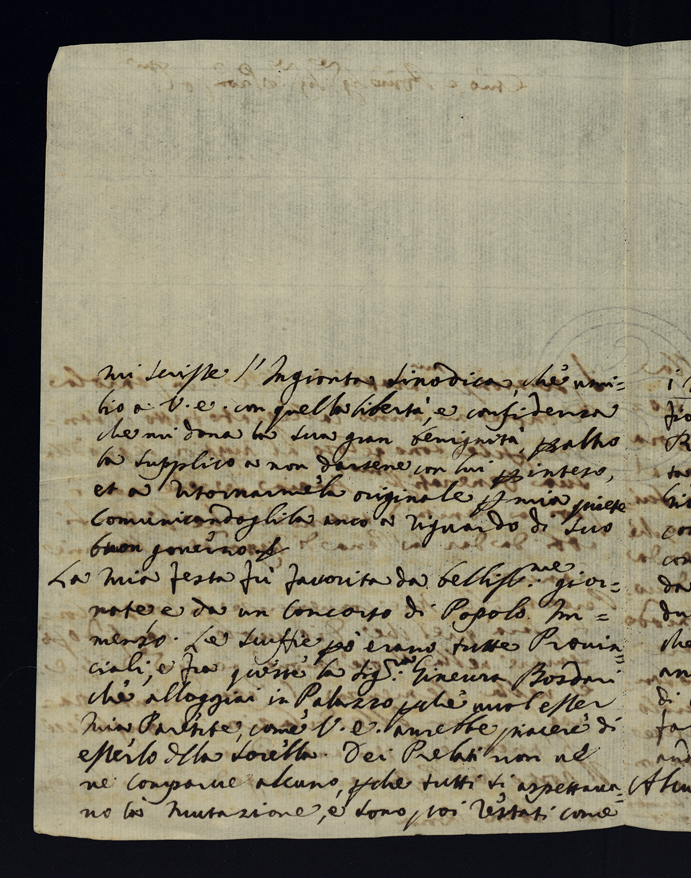 mi scrisse l'Ingionta sinodica, che umi=
lio a V. e. con quella libertà, e confidenza
che mi dona la sua gran benignità, per altro
la supplico a non darsene con lui per inteso,
et a ritornarmela originale per mia quiete
Comunicandogliela anco a riguardo di suo
buon governo
La mia festa fù favorita da belliss.me gior=
nate e da un Concorso di Popolo Im=
menso. Le Cuffie però erano tutte Provin=
ciali, e frà queste la Sig.ra Ginevra Bordoni
che alloggiai in Palazzo perche vuol esser
mia Parente, come V. e. avrebbe piacere di
esserlo della sorella. Dei Prelati non ne
ne comparve alcuno, perche tutti si aspettava=
no la mutazione, e sono poi restati come